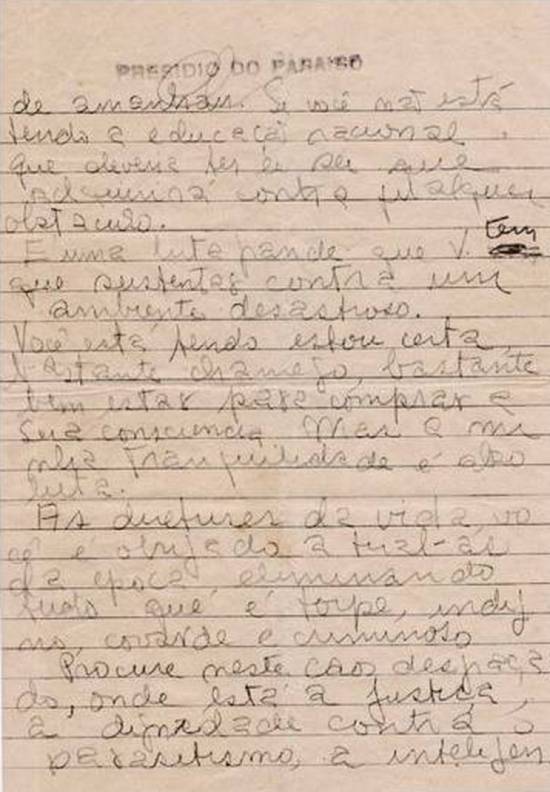 PRESIDIO DO PARAISO
de amanhan. Se você não está
tendo a educação nacional
que deveria ter é seu que
adquirirá contra qualquer
obstaculo.
E uma luta grande que V. tem
que sustentar contra um
ambiente desastroso.
Você está tendo estou certa,
bastante chamego, bastante
bem estar para comprar a
sua consciencia. Mas a mi
nha tranquilidade é abso
luta.
As diretrizes da vida, vo
cê é obrijado a tiral-as
da época, eliminando
tudo que é torpe, indij
no, covarde e criminoso
Procure neste caos desgraça
do, onde está a justiça,
a dignidade contra o
parasitismo, a intelijen